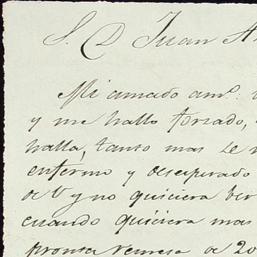 S. D Juan A
Mi amado am.º
y me hallo forzado,
halla, tanto mas le
enfermo y desesperado
de V y no quisiera
cuando quisiera mas
pronta remesa de 20